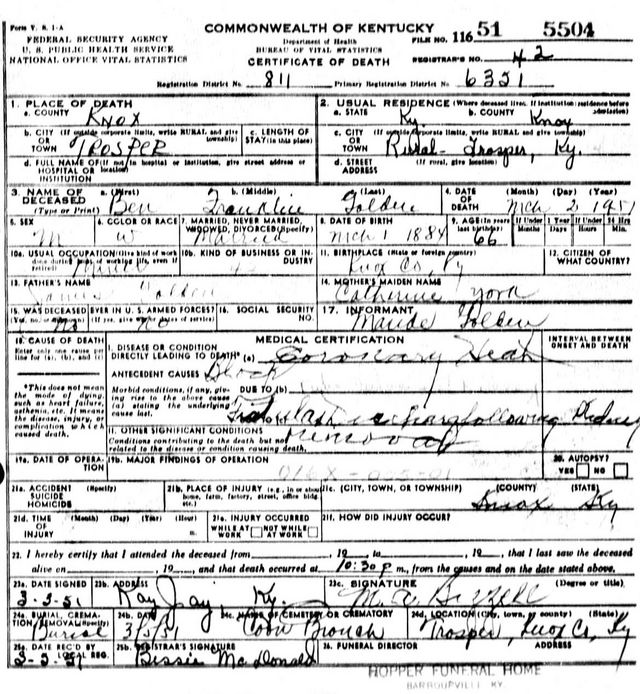 Form V. S. 1-A
COMMONWEALTH OF KENTUCKY
FEDERAL SECURITY AGENCY
U. S. PUBLIC HEALTH SERVICE
NATIONAL OFFICE VITAL STATISTICS
Department of Health
BUREAU OF VITAL STATISTICS
CERTIFICATE OF DEATH
FILE NO. 116 51 5504
REGISTRAR'S NO. 42
Registration District No. 811 Primary Registration District No. 6351
1. PLACE OF DEATH
a. COUNTY Knox
2. USUAL RESIDENCE (Where deceased lived. If institution: residence before admission)
a. STATE Ky. b. COUNTY Knox
b. CITY (If outside corporate limits, write RURAL and give township) OR TOWN TROSPER
c. LENGTH OF STAY (in this place)
c. CITY (If outside corporate limits, write RURAL and give township) OR TOWN Rural - Trosper, Ky.
d. FULL NAME OF (If not in hospital or institution, give street address or location) HOSPITAL OR INSTITUTION
d. STREET ADDRESS (If rural, give location)
3. NAME OF DECEASED (Type or Print) a. (First) Ben b. (Middle) Franklin c. (Last) Golden
4. DATE OF DEATH (Month) (Day) (Year) Mch 2 1951
5. SEX M
6. COLOR OR RACE W
7. MARRIED, NEVER MARRIED, WIDOWED, DIVORCED (Specify) Married
8. DATE OF BIRTH Mch 1 1884
9. AGE (In years last birthday) 66
If Under 1 Year Months Days
If Under 24 Hrs Hours Min.
10a. USUAL OCCUPATION (Give kind of work done during most of working life, even if retired)
10b. KIND OF BUSINESS OR INDUSTRY
11. BIRTHPLACE (State or foreign country) Knox Co, Ky
12. CITIZEN OF WHAT COUNTRY?
13. FATHER'S NAME Golden
14. MOTHER'S MAIDEN NAME Catherine York
15. WAS DECEASED EVER IN U. S. ARMED FORCES? (Yes, no, or unknown) (If yes, give war or dates of service) No
16. SOCIAL SECURITY NO.
17. INFORMANT Maude Golden
18. CAUSE OF DEATH
Enter only one cause per line for (a), (b), and (c)
MEDICAL CERTIFICATION
INTERVAL BETWEEN ONSET AND DEATH
I. DISEASE OR CONDITION DIRECTLY LEADING TO DEATH* (a) Coronary Heart
Block
ANTECEDENT CAUSES
*This does not mean the mode of dying, such as heart failure, asthenia, etc. It means the disease, injury, or complication which caused death.
Morbid conditions, if any, giving rise to the above cause (a) stating the underlying cause last.
DUE TO (b)
following Kidney
removal
II. OTHER SIGNIFICANT CONDITIONS
Conditions contributing to the death but not related to the disease or condition causing death.
19a. DATE OF OPERATION
19b. MAJOR FINDINGS OF OPERATION
20. AUTOPSY?
YES NO
21a. ACCIDENT SUICIDE HOMICIDE (Specify)
21b. PLACE OF INJURY (e.g., in or about home, farm, factory, street, office bldg. etc.)
21c. (CITY, TOWN, OR TOWNSHIP) (COUNTY) (STATE)
Knox Ky
21d. TIME OF INJURY (Month) (Day) (Year) (Hour) m.
21e. INJURY OCCURRED WHILE AT WORK NOT WHILE AT WORK
21f. HOW DID INJURY OCCUR?
22. I hereby certify that I attended the deceased from , 19 to , 19 , that I last saw the deceased
alive on , 19 , and that death occurred at 10:30 p m., from the causes and on the date stated above.
23a. DATE SIGNED 3-3-51
23b. ADDRESS Kay Jay, Ky.
23c. SIGNATURE (Degree or title)
24a. BURIAL, CREMATION, REMOVAL (Specify) Burial
24b. DATE 3/5/51
24c. NAME OF CEMETERY OR CREMATORY
24d. LOCATION (City, town, or county) (State) Trosper, Knox Co, Ky
25a. DATE REC'D BY LOCAL REG. 3-3-51
25b. REGISTRAR'S SIGNATURE Bessie McDonald
26. FUNERAL DIRECTOR ADDRESS
HOPPER FUNERAL HOME
BARBOURVILLE KY